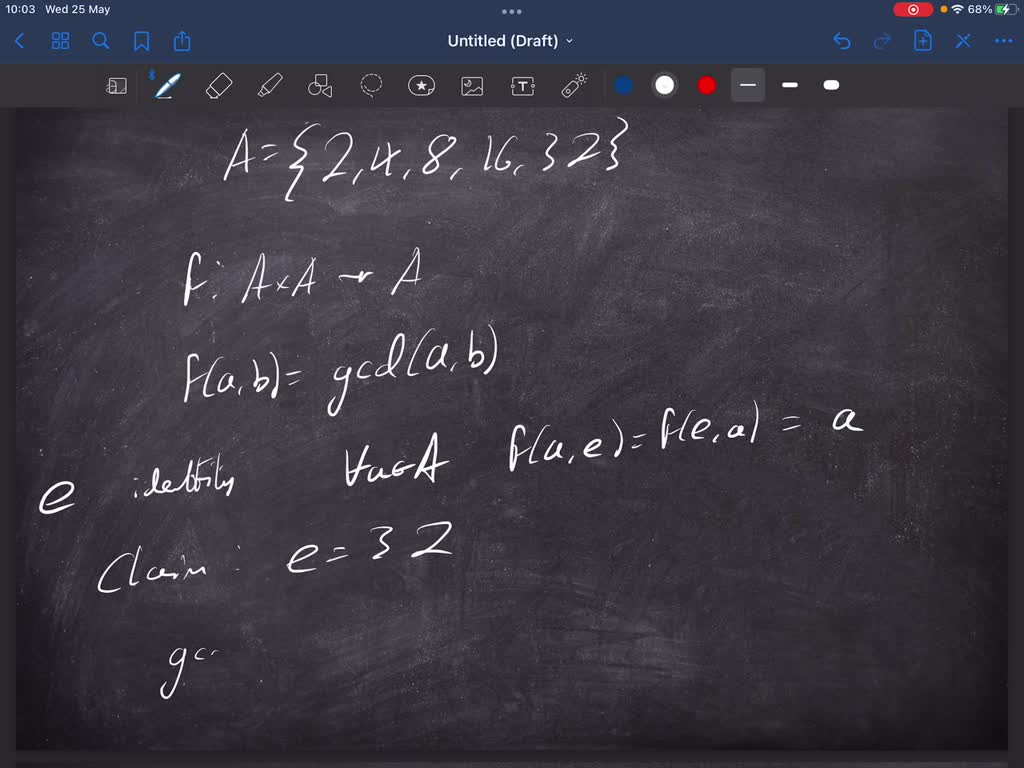 10:03 Wed 25 May
68%
Untitled (Draft)
T
A={2,4,8,16,32}
f: A×A → A
f(a,b)= gcd(a,b)
e identity ∀a∈A f(a,e)=f(e,a) = a
Claim: e=32
gc